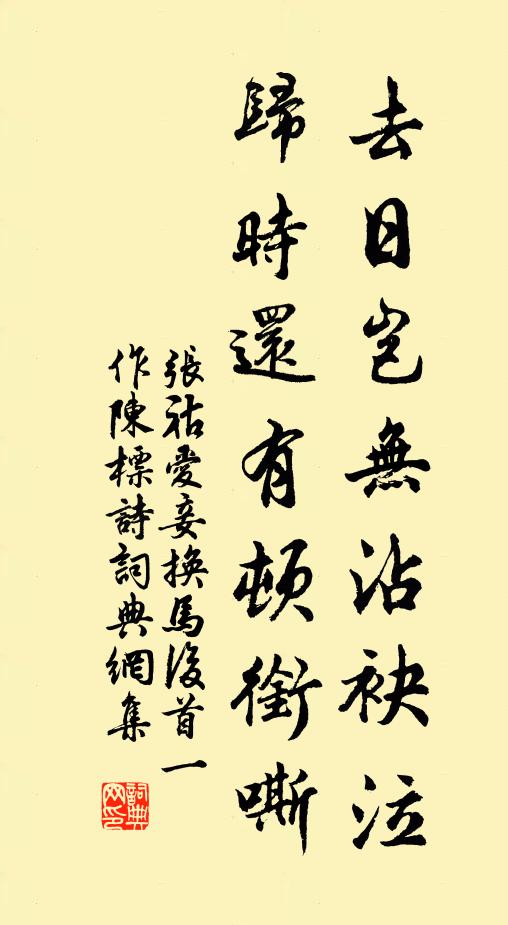 去日豈無沾袂泣
歸時還有頓銜嘶
張祜愛妾換馬後首一
作陳標詩詞典網集
詞典
网